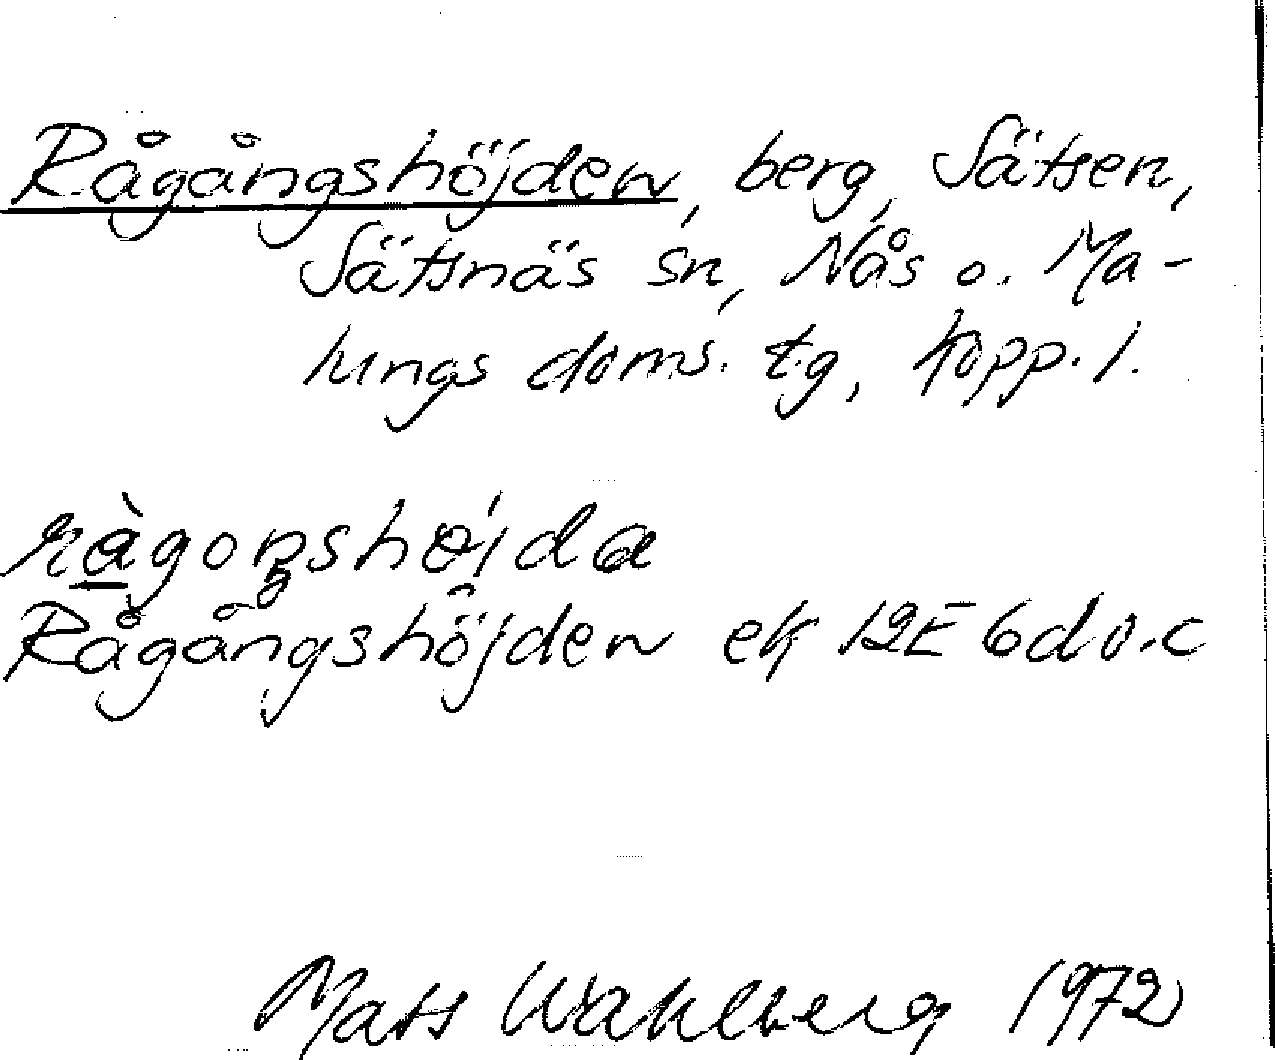 Rågångshöjden, berg, Sätsen,
Sätsnäs sn, Nås o. Ma-
lungs doms. tg, Kopp. l.
Rågångshöjden ek 12E 6d o. c
Mats Wahlberg 1972